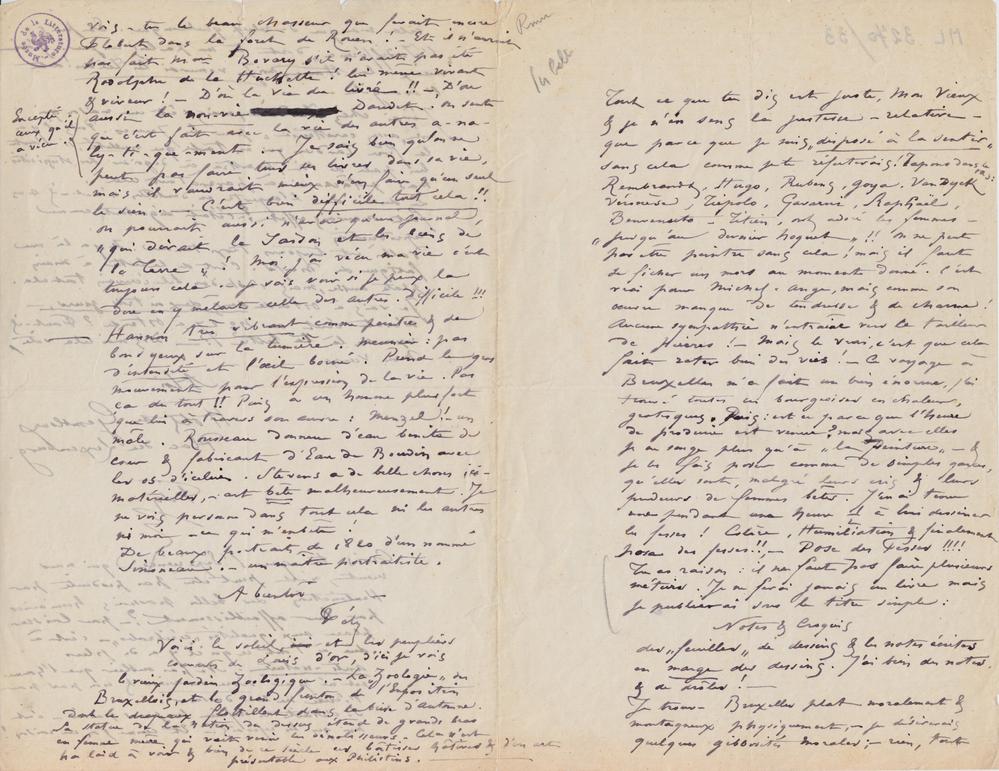 Tout ce que tu dis est juste, mon vieux
& je n'en sens la justesse – relative –
que parce que je suis „disposé à la sentir„
sans cela comme je te réfuterais!
Rembrandt, Hugo, Rubens, Goya, Van Dyck
Véronèse, Tiepolo, Gavarni, Raphaël,
Benvenuto – Titien, ont adoré les femmes –
„jusqu'au dernier hoquet„!! On ne peut
pas être peintre sans cela; mais il faut
se ficher un mors au moment donné. C'est
vrai pour Michel-Ange, mais comme son
œuvre manque de tendresse & de charme!
Aucune sympathie n'entraîne vers le tailleur
de Pierres! – Mais le vrai, c'est que cela
fait rater bien des vies! – Ce voyage à
Bruxelles m'a fait un bien énorme, j'ai
trouvé toutes ces bourgeoises en chaleur,
grotesques. Puis: est ce parce que l'heure
de produire est venue? mais avec elles
je ne songe plus qu'à „la Peinture„ – &
je les fais poser comme de simples garces,
qu'elles sont, malgré leurs cris & leurs
pudeurs de femmes bêtes. J'en ai tenu
une pendant une heure ½ à lui dessiner
les fesses! Colère, Humiliation & finalement
pose des fesses!!, – Pose des Fesses!!!!
Tu as raison: il ne faut pas faire plusieurs
métiers. Je ne ferai jamais un livre mais
je publierai sous le titre simple:
Notes & Croquis
des „feuilles„ de dessins & les notes écrites
en marge des dessins. J'ai bien des notes.
& de drôles! –
Je trouve Bruxelles plat moralement &
montagneux physiquement, – je désirerais
quelques gibbosités morales; – rien, tout
Vois-tu le beau chasseur que ferait encore
Flaubert dans la forêt de Rouen! – Et il n'aurait
pas fait Mme Bovary s'il n'avait pas été
Rodolphe de la Huchette! lui même vivant
& viveur! – D'où la vie du livre!! – D'où
aussi la non-vie Daudet: on sent
Excepté
ceux qu'il
a vécu.
que c'est fait avec la vie des autres a-na-
ly-ti-que-ment. – Je sais bien qu'on ne
peut pas faire tous ses livres dans sa vie,
mais il vaudrait mieux n'en faire qu'un seul
le sien – C'est bien difficile tout cela!!
on pourrait aussi, n'avoir qu'un journal,
„qui dirait le Jardon et les gens de
la Terre„! Moi, j'ai vécu ma vie c'est
toujours cela & je vais voir si je peux la
dire en y mêlant celle des autres. Difficile!!!
Hannon très vibrant comme peintre & de
bons yeux sur la lumière. Meunier: pas
d'intensité et l'œil borné! Prend le gros
mouvement pour l'expression de la vie. Pas
ça du tout!! Puis a un homme plus fort
que lui à travers son œuvre: Menzel! un
mâle. Rousseau donneur d'eau bénite de
cour & fabricant d'Eau de Boudin avec
les os d'. Stevens a de belles choses
matérielles, – art bête malheureusement. Je
ne vois personne dans tout cela ni les autres
ni moi – ce qui m'embête!
De beaux portraits de 1820 d'un nommé
Simoneau: – un maître portraitiste.
A bientôt
Fély
Voici le soleil, et les peupliers
couverts de Louis d'or, d'ici je vois
le vieux jardin Zoologique. – La Zoologie„ des
Bruxellois, et le grand fronton de l'Exposition
dont les drapeaux flottillent dans la brise d'automne.
La statue de la Nation du dessus étend de grands bras
en femme mère qui voit venir les . Cela n'est
pas laid à voir & bien de ce siècle en bâtisses & d'un art
présentable aux Philistins.
Musée de la Littérature
ML 3270/33